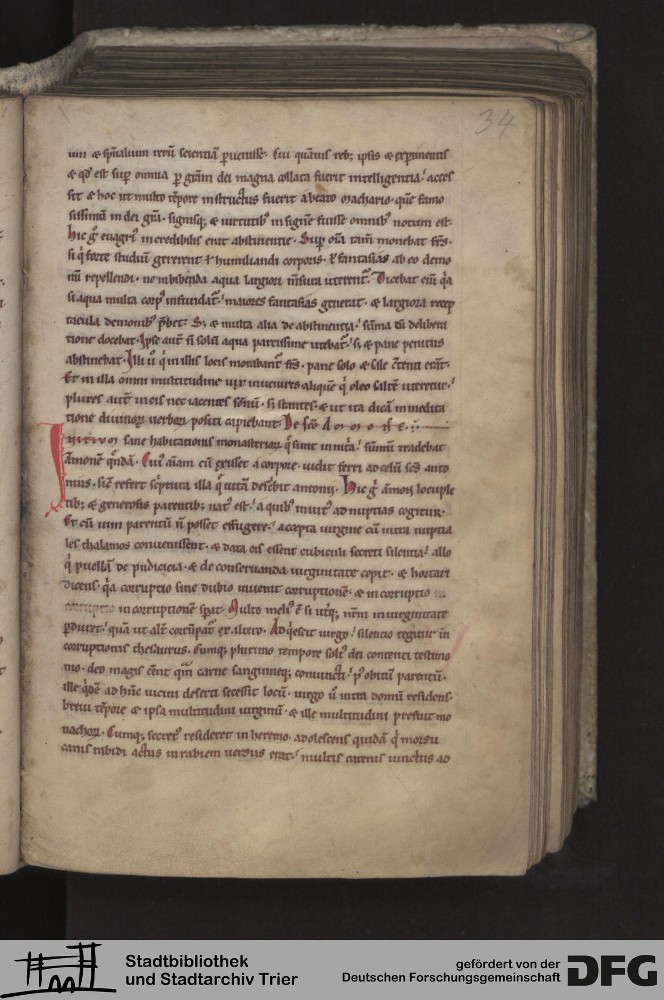 34
um & sp̄ualium rerū scientiā ꝑuenisse. Cui quāuis reb; ipsis & exꝑimentis
& qđ est suꝑ omnia ꝑ grām dei magna collata fuerit intelligentia. acces
sit & hoc ut multo tēpore instructus fuerit a beato Machario. quē famo
sissimū in dei grā. signisq; & uirtutibꝰ insignē fuisse omnibꝰ notum est.
hic g̊ euagrꝰ incredibilis erat abstinentie. Suꝑ oīa tam̄ monebat frēs.
si q̇ forte studiū gererent ł humiliandi corporis. ł fantasias ab eo demo
nū repellendi. ne in bibenda aqua largiori m̄sura uterent᷑. Dicebat enī q̇a
si aqua multa corpꝰ infundat᷑. maiores fantasias generat. & largiora recep
tacula demonibꝰ p̄bet. S; & multa alia de abstinentia. sūma cū delibera
tione docebat. Ipse aut̄ n̄ solū aqua parcissime utebat᷑. s; & pane penitus
abstinebat. Illi ū q̇ in illis locis morabant᷑ frēs. pane solo & sale c̄tenti erāt.
Et in illa omni multitudine uix inuenires aliquē q̇ oleo saltē uteretur.
plures aut̄ in eis nec iacentes sōnū. s; stantes. & ut ita dicā in medita
tione diuinoꝝ uerboꝝ positi capiebant. De sc̄o Ammone.
Initium sane habitationis monasterioꝝ q̄ sunt in nitria. sumū tradebat᷑
amonē quēdā. Cuiꝰ aīam cū exisset a corpore. uidit ferri ad celū sc̄s anto
nius. sic̄ refert scptura illa q̄ uitā describit antonii. Hic g̊ amon locuple
tib; & generosis parentib; natꝰ est. a quibꝰ inuitꝰ ad nuptias cogitur.
Et cū uim parentū n̄ posset effugere. accepta uirgine cū intra nuptia
les thalamos conuenissent. & data eis essent cubiculi secreti silentia. allo
q̇ puellā de pudicicia. & de conseruanda uirginitate cepit. & hortari
dicens. q̇a corruptio sine dubio inuenit corruptionē. & in corruptio
corruptio in corruptionē sperat. Multo meliꝰ ē si utq; nr̄m in uirginitate
ꝑduret. quā ut alt̄ corrūpat᷑ ex altero. Adq̇escit uirgo. silentio tegitur in
corruptionis thesaurus. Cumq; plurimo tempore solꝰ dei contenti testimo
nio. deo magis eēnt qm̄ carne sanguineq; coniuncti. pꝰ obitū parentū.
ille q̇dē ad hūc uicini deserti secessit locū. uirgo ū intra domū residens.
breui tēpore & ipsa multitudini uirginū. & ille multitudini prefuit mo
nachoꝝ. Cumq; secretꝰ resideret in heremo. adolescens quidā q̇ morsu
canis rabidi actus in rabiem uersus erat. multis catenis uinctus ad
Stadtbibliothek
und Stadtarchiv Trier
gefördert von der
Deutschen Forschungsgemeinschaft DFG